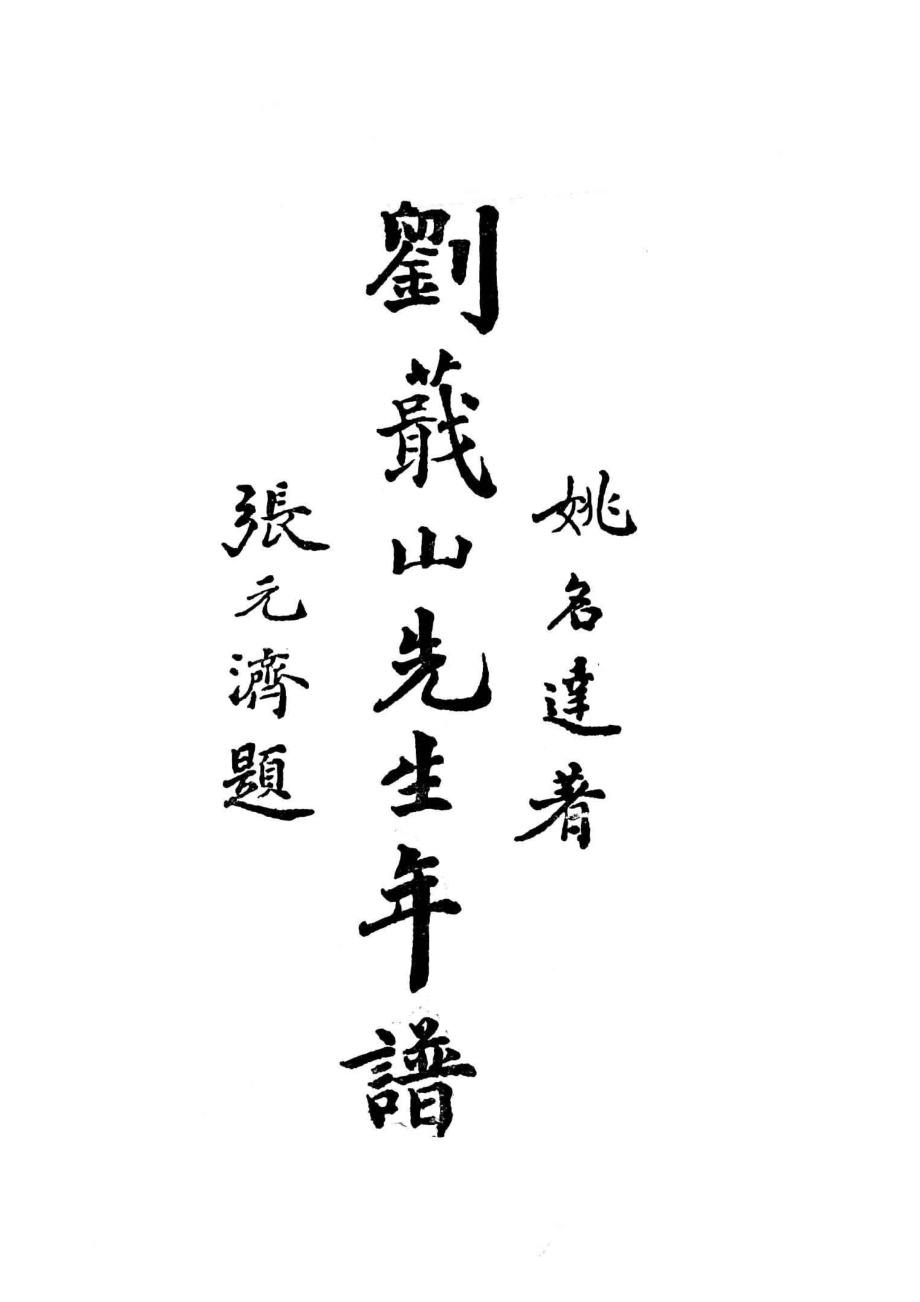 姚名達著
劉蕺山先生年譜
張元濟題